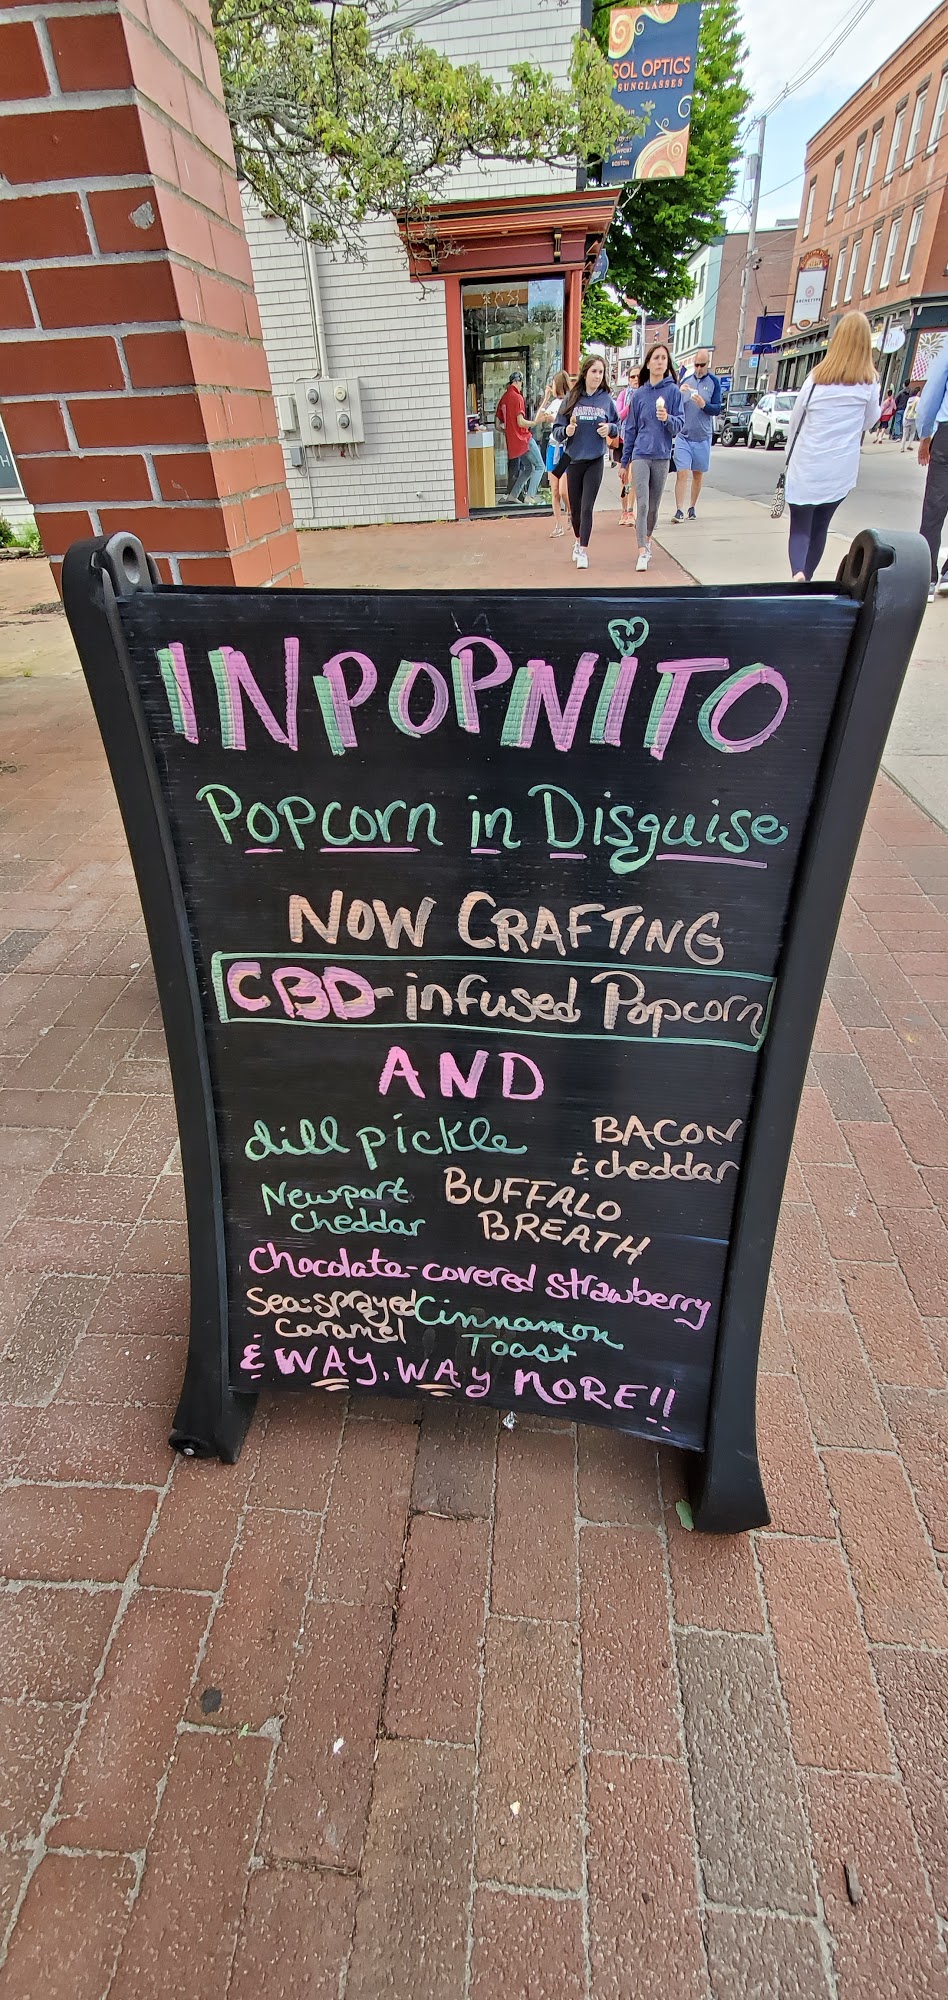 SOL OPTICS
SUNGLASSES
NEWPORT
BOSTON
ARCHETYPE
INPOPNiTO
Popcorn in Disguise
NOW CRAFTING
CBD-infused Popcorn
AND
dill pickle
BACON
& cheddar
Newport
cheddar
BUFFALO
BREATH
Chocolate-covered strawberry
Sea-sprayed
caramel
Cinnamon
Toast
& WAY, WAY MORE!!